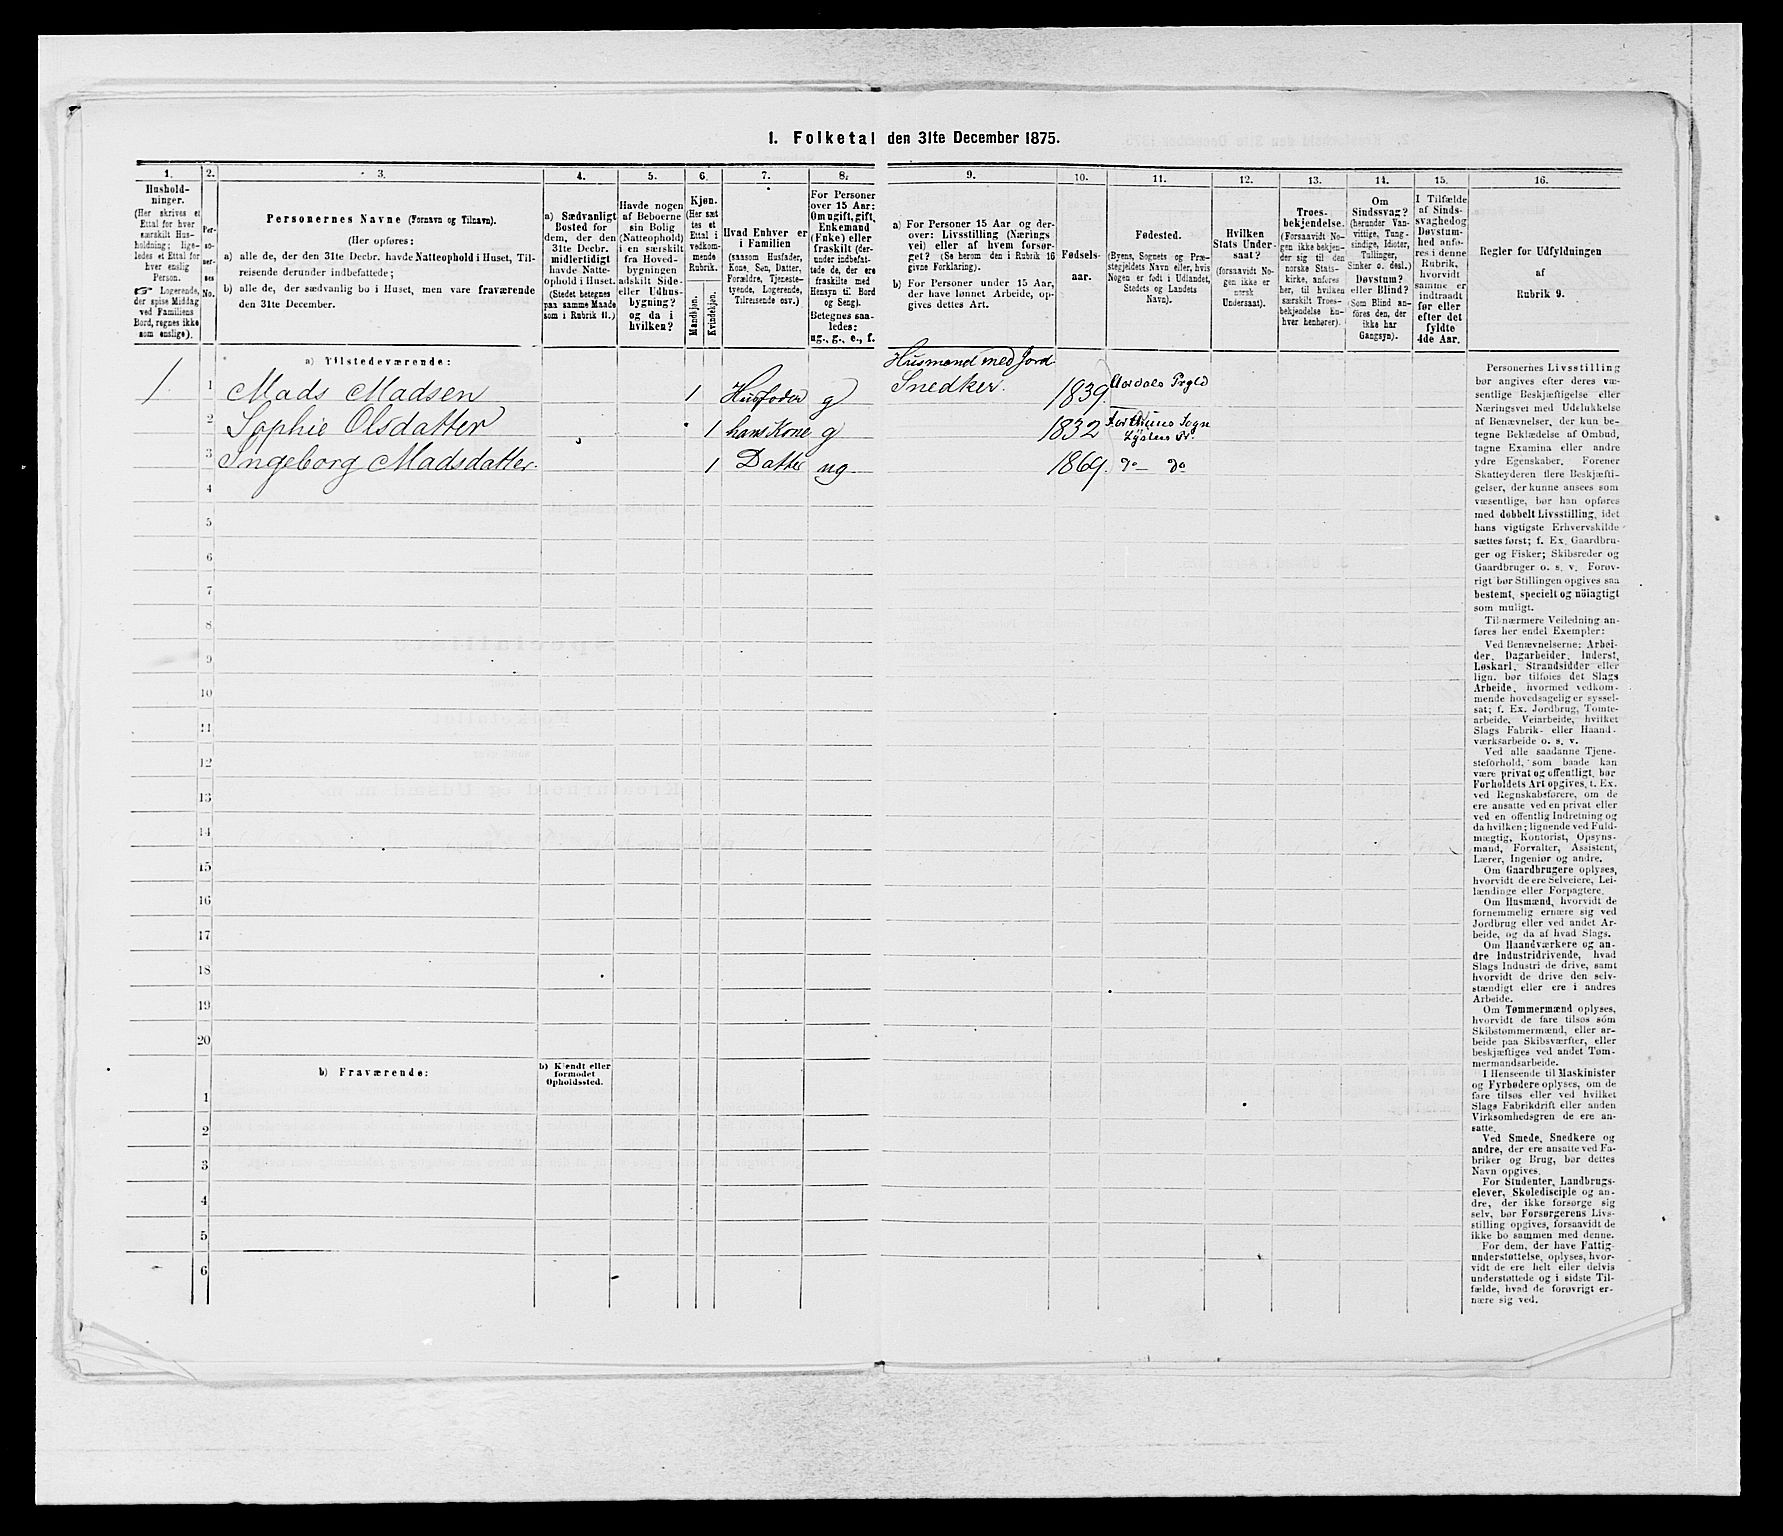 1. Folketal den 31te December 1875.
1. 2. 3. 4. 5. 6. 7. 8. 9. 10. 11. 12. 13. 14. 15. 16.
Hushold-
ninger.
(Her skrives et
Ettal for hver
særskilt Hus-
holdning; lige-
ledes et Ettal for
hver enslig
Person.
☞ Logerende,
der spise Middag
ved Familiens
Bord, regnes ikke
som enslige).
Per-
so-
ner-
nes
No.
Personernes Navne (Fornavn og Tilnavn).
(Her opføres:
a) alle de, der den 31te Decbr. havde Natteophold i Huset, Til-
reisende derunder indbefattede;
b) alle de, der sædvanlig bo i Huset, men vare fraværende
den 31te December.
a) Sædvanligt
Bosted for
dem, der den
31te Decbr.
midlertidigt
havde Natte-
ophold i Huset.
(Stedet betegnes
paa samme Maade
som i Rubrik 11.)
Havde nogen
af Beboerne
sin Bolig
(Natteophold)
i en særskilt
fra Hoved-
bygningen
adskilt Side-
eller Udhus-
bygning?
og da i
hvilken?
Kjøn.
(Her sæt
tes et
Ettal i
vedkom-
mende
Rubrik.
Mandkjøn.
Kvindekjøn.
Hvad Enhver er
i Familien
(saasom Husfader,
Kone, Søn, Datter,
Forældre, Tjeneste-
tyende, Logerende,
Tilreisende osv.)
For Personer
over 15 Aar:
Om ugift, gift,
Enkemand
(Enke) eller
fraskilt (der-
under indbefat-
tede de, der ere
fraskilte med
Hensyn til Bord
og Seng).
Betegnes saa-
ledes:
ug., g., e., f.
a) For Personer 15 Aar og der-
over: Livsstilling (Nærings
vei) eller af hvem forsør-
get? (Se herom den i Rubrik 16
givne Forklaring).
b) For Personer under 15 Aar,
der have lønnet Arbeide, op-
gives dettes Art.
Fødsels-
aar.
Fødested.
(Byens, Sognets og Præ-
stegjeldets Navn eller, hvis
Nogen er født i Udlandet,
Stedets og Landets
Navn).
Hvilken
Stats Under-
saat?
(forsaavidt No-
gen ikke er
norsk
Undersaat).
Troes-
bekjendelse.
(Forsaavidt No-
gen ikke bekjen-
der sig til den
norske Stats-
kirke, anføres
her, til hvilken
særskilt Troes-
bekjendelse En-
hver henhører).
Om
Sindssvag?
(herunder Van-
vittige, Tung-
sindige, Idioter,
Tullinger,
Sinker o. desl.)
Døvstum?
eller Blind?
(Som Blind an-
føres den, der
ikke har
Gangsyn).
I Tilfælde
af Sinds-
svaghed og
Døvstum-
hed anfø-
res i denne
Rubrik,
hvorvidt
samme er
indtraadt
før eller
efter det
fyldte
4de Aar.
Regler for Udfyldningen
af
Rubrik 9.
a) Tilstedeværende:
Husmand med Jord
1 1 Mads Madsen 1 Husfader g Snedker. 1839 Aardals Prgld
2 Sophie Olsdatter 1 hans Kone g 1832 Forthuns Sogn
Lysters Pr.
3 Ingeborg Madsdatter 1 Datter ug 1869. do do
4
5
6
7
8
9
10
11
12
13
14
15
16
17
18
19
20
b) Fraværende: b) Kjendt eller
formodet
Opholdssted.
1
2
3
4
5
6
Personernes Livsstilling
bør angives efter deres væ-
sentlige Beskjæftigelse eller
Næringsvei med Udelukkelse
af Benævnelser, der kun be-
tegne Beklædelse af Ombud,
tagne Examina eller andre
ydre Egenskaber. Forener
Skatteyderen flere Beskjæfti-
gelser, der kunne ansees som
væsentlige, bør han opføres
med dobbelt Livsstilling, idet
hans vigtigste Erhvervskilde
sættes først; f. Ex. Gaardbru-
ger og Fisker; Skibsreder og
Gaardbruger o. s. v. Forøv-
rigt bør Stillingen opgives saa
bestemt, specielt og nöiagtigt
som muligt.
Til nærmere Veiledning an-
føres her endel Exempler:
Ved Benævnelserne: Arbei-
der, Dagarbeider, Inderst,
Løskarl, Strandsidder eller
lign. bør tilføies det Slags
Arbeide, hvormed vedkom-
mende hovedsagelig er syssel-
sat; f. Ex. Jordbrug, Tomte-
arbeide, Veiarbeide, hvilket
Slags Fabrik- eller Haand-
værksarbeide o. s. v.
Ved alle saadanne Tjene-
steforhold, som baade kan
være privat og offentligt, bør
Forholdets Art opgives, t. Ex.
ved Regnskabsførere, om de
ere ansatte ved en privat eller
ved en offentlig Indretning og
da hvilken; lignende ved Fuld-
mægtig, Kontorist, Opsyns-
mand, Forvalter, Assistent,
Lærer, Ingeniør og andre.
Om Gaardbrugere oplyses,
hvorvidt de ere Selveiere, Lei-
lændinge eller Forpagtere.
Om Husmænd, hvorvidt de
fornemmelig ernære sig ved
Jordbrug eller ved andet Ar-
beide, og da af hvad Slags.
Om Haandværkere og an-
dre Industridrivende, hvad
Slags Industri de drive, samt
hvorvidt de drive den selv-
stændigt eller ere i andres
Arbeide.
Om Tømmermænd oplyses,
hvorvidt de fare tilsøs som
Skibstømmermænd, eller ar-
beide paa Skibsværfter, eller
beskjæftiges ved andet Tøm-
mermandsarbeide.
I Henseende til Maskinister
og Fyrbødere oplyses, om de
fare tilsøs eller ved hvilket
Slags Fabrikdrift eller anden
Virksomhedsgren de ere an-
satte.
Ved Smede, Snedkere og
andre, der ere ansatte ved Fa-
briker og Brug, bør dettes
Navn opgives.
For Studenter, Landbrugs-
elever, Skoledisciple og an-
dre, der ikke forsørge sig
selv, bør Forsørgerens Livs-
stilling opgives, forsaavidt de
ikke bo sammen med denne.
For dem, der have Fattig-
understøttelse, oplyses, hvor-
vidt de ere helt eller delvis
understøttede og i sidste Til-
fælde, hvad de forøvrigt er-
nære sig ved.